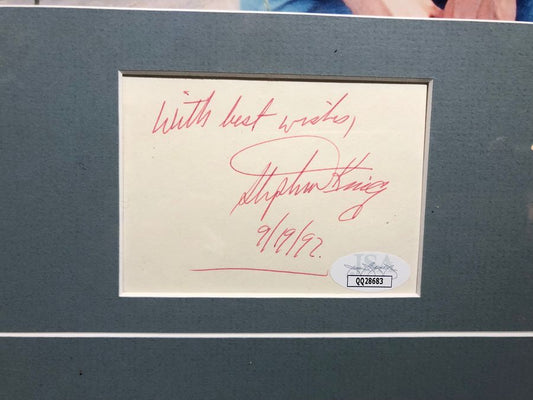 With best wishes,
Stephen King
9/19/92
JSA
QQ28683